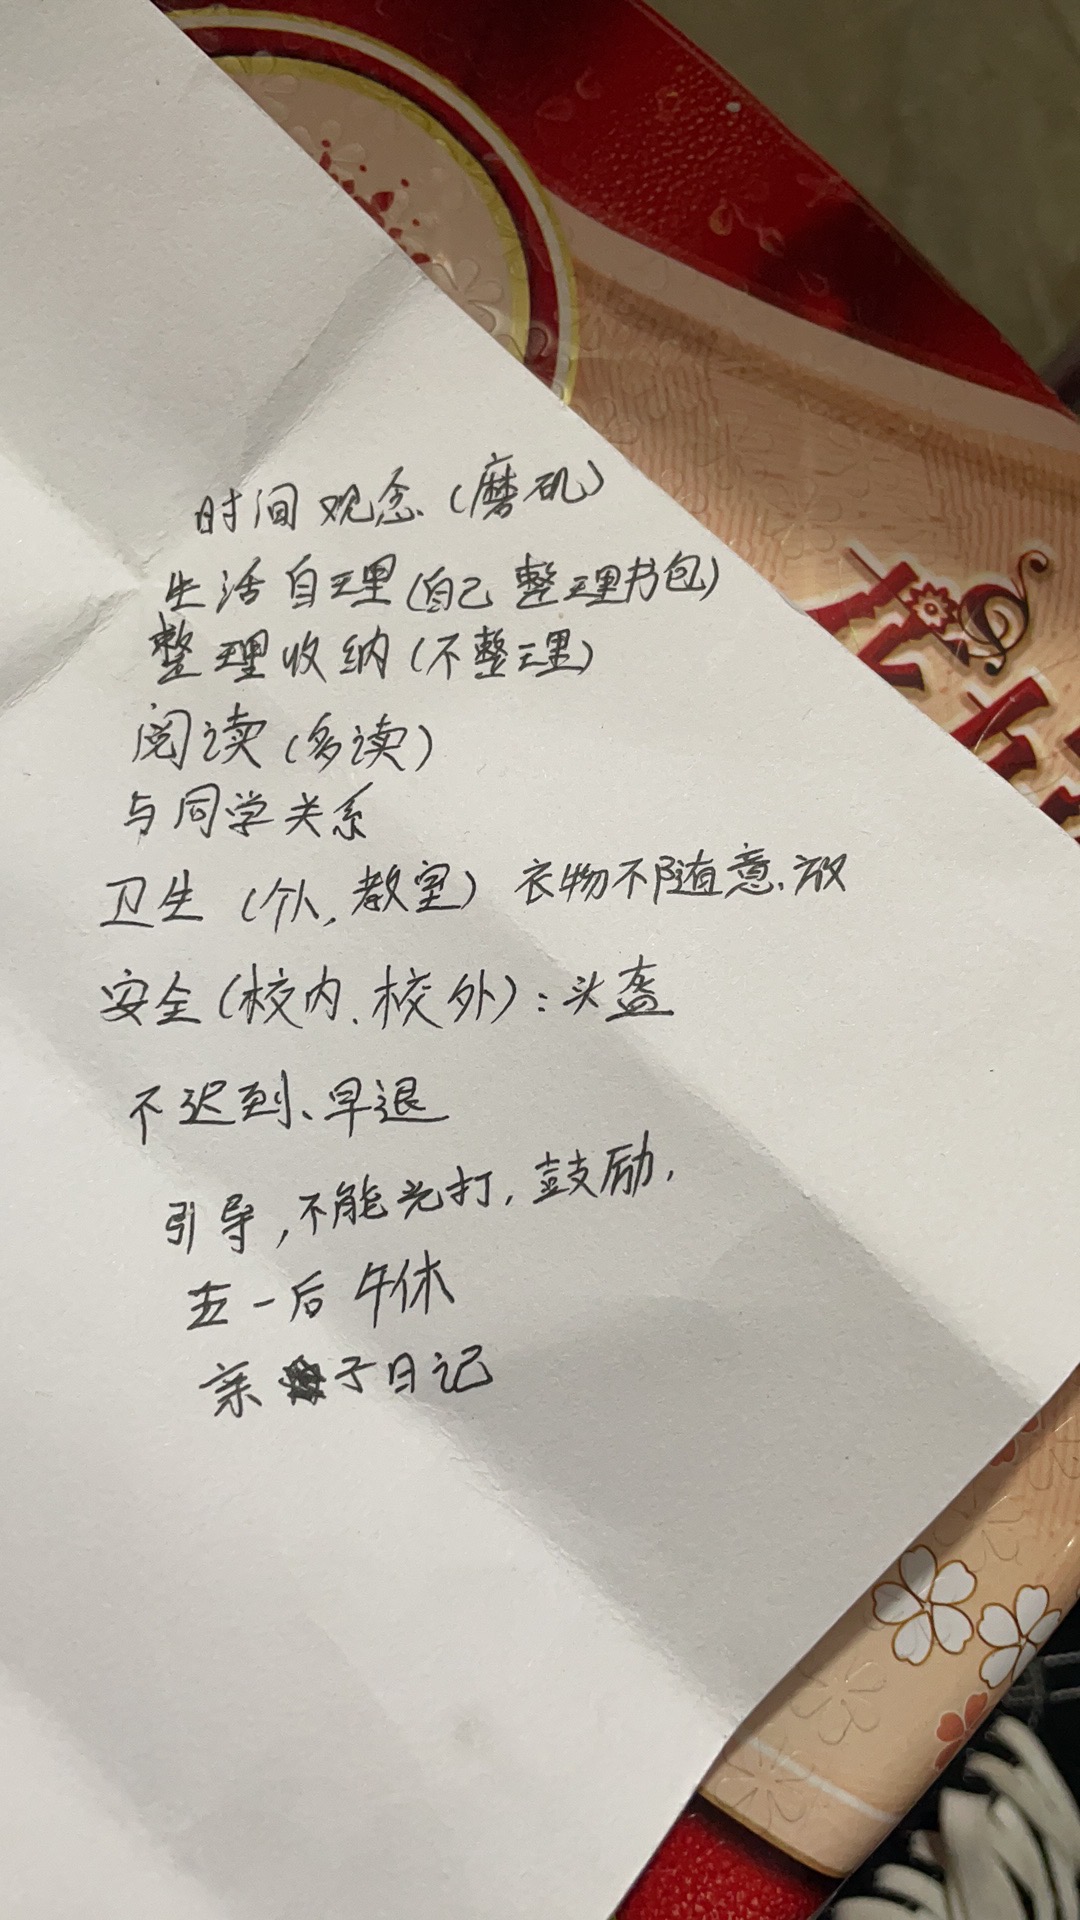 时间观念（磨矶）
生活自理（自己整理书包）
整理收纳（不整理）
阅读（多读）
与同学关系
卫生（个人，教室）衣物不随意放
安全（校内、校外）：头盔
不迟到、早退
引导，不能光打，鼓励，
五一后 午休
亲子日记